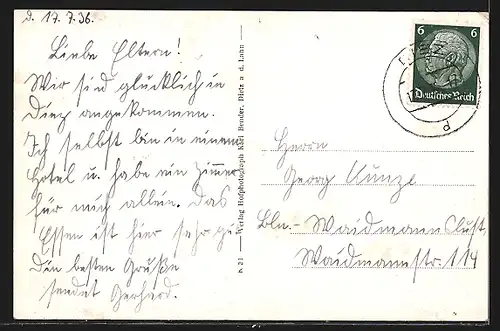 d. 17.7.36.
Liebe Eltern!
Wir sind glücklich in
Diez angekommen.
Ich selbst bin in einem
Hotel u. habe ein Zimmer
für mich allein. Das
Essen ist hier sehr gut
Die besten Grüße
sendet Gerhard.
K 21 — Verlag Hofphotograph Karl Bender, Dietz a. d. Lahn —
6 6
Deutsches Reich
Herrn
Georg Kunze
Bln.-Waidmannslust,
Waidmannstr. 114